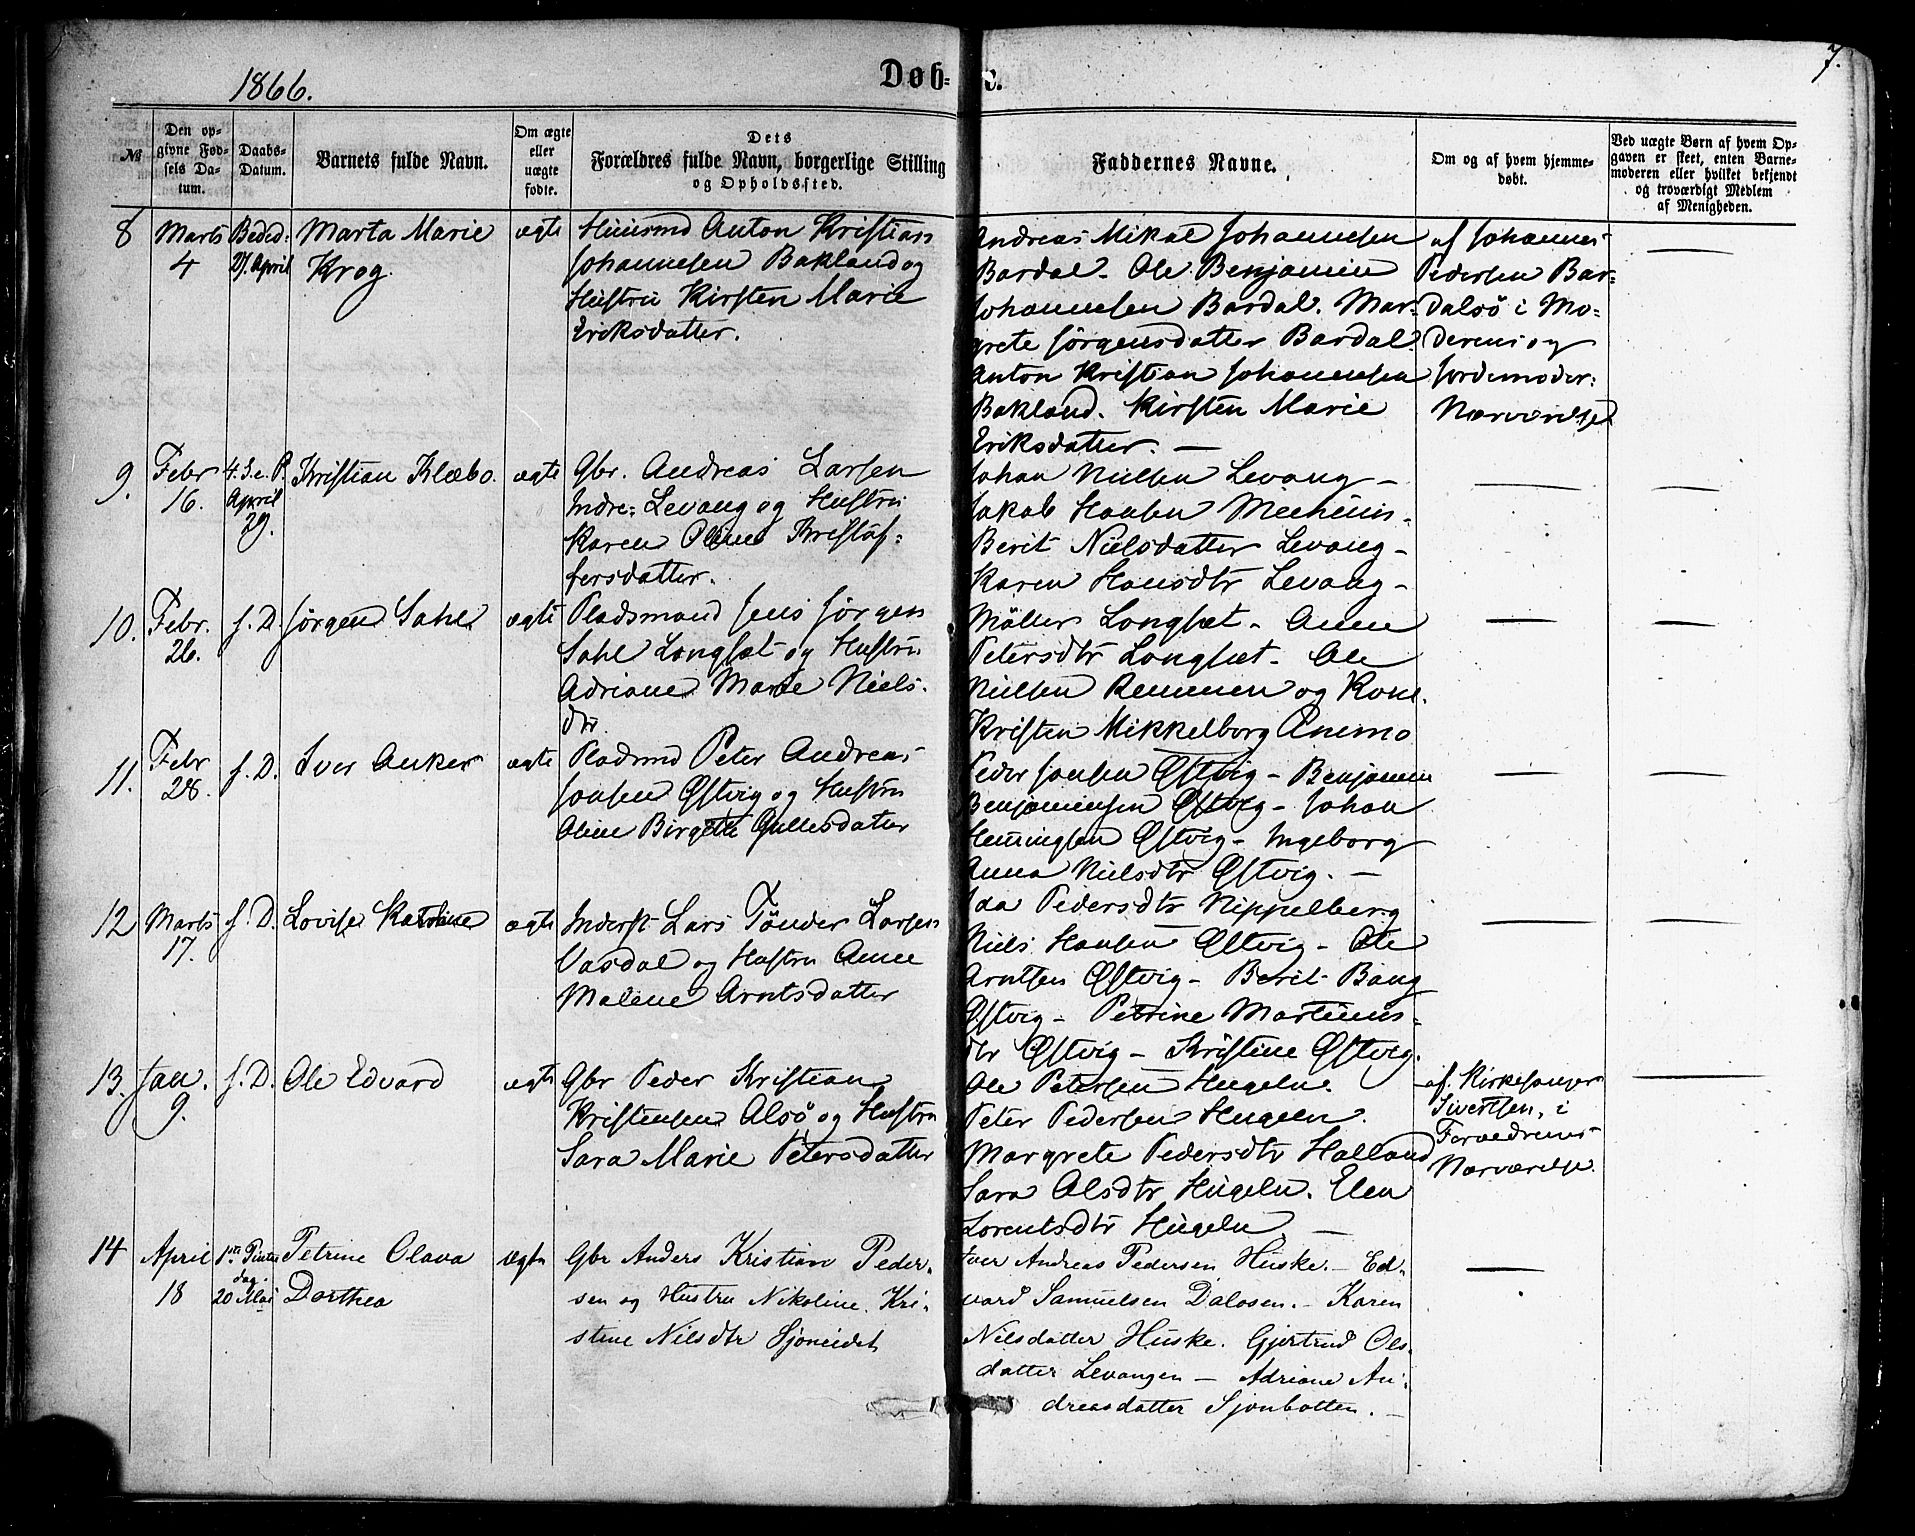 1866.
Døb=
e.
7.
№
Den op-
givne Fød-
sels Da-
tum.
Daabs-
Datum.
Barnets fulde Navn.
Om ægte
eller
uægte
fødte.
Dets
Forældres fulde Navn, borgerlige Stilling
og Opholdssted.
Faddernes Navne.
Om og af hvem hjemme-
døbt.
Ved uægte Børn af hvem Op-
gaven er skeet, enten Barne-
moderen eller hvilket bekjendt
og troværdigt Medlem
af Menigheden.
8
Marts
4
Beded:
27. April
Marta Marie
Krog
ægte
Huusmd Anton Kristian
Johannesen Bakland og
Hustru Kirsten Marie
Eriksdatter.
Andreas Mikal Johannesen
Bardal. Ole Benjamin
Johannesen Bardal. Mar-
grete Jørgensdatter Bardal.
Anton Kristian Johannesen
Bakland. Kirsten Marie
Eriksdatter. —
af Johannes
Pedersen Bar-
dalsö i Mo-
derens og
Jordemoder:
Nærværelse
—
9.
Febr
16.
4. S. e. P.
April
29.
Kristian Klæbo.
ægte
Gbr. Andreas Larsen
Indre: Levang og Hustru
Karen Oline Kristof-
fersdatter.
Johan Nielsen Levang -
Jakob Hansen
Berit Nielsdatter Levang -
Karen Hansdtr Levang -
—
—
10.
Febr.
26.
s. D.
Jørgen Sahl
ægte
Pladsmand Jens Jørgen
Sahl Langset og Hustru
Adriane Marie Niels.
dtr.
Möller Langset - Anne
Petersdtr Langset - Ole
Nielsen Remmen og Kone.
Kristen Mikkelborg
—
—
11.
Febr
28.
s. D.
Iver Anker
ægte
Pladsmd Peter Andreas
Jonsen Østvig og Hustru
Oline Birgitte Gullesdatter
Peder Jonsen Østvig - Benjamin
Benjaminsen Østvig - Johan
Henningsen Østvig - Ingeborg
Anna Nielsdtr Østvig. —
—
—
12
Marts
17.
s. D.
Lovise Katrine
ægte
Inderst Lars Tönder Larsen
Vasdal og Hustru Anne
Malene Arntsdatter
Ida Pedersdtr Nippelberg
Niels Hansen Østvig - Ole
Arntsen Østvig - Berit Bang
Østvig - Petrine Martinus-
dtr Østvig - Kristine Østvig.
—
—
13.
Jan.
9.
s. D.
Ole Edvard
ægte
Gbr Peder Kristian
Kristensen Alsö og Hustru
Sara Marie Petersdatter
Ole Petersen Hugeln.
Peter Pedersen Hugeln.
Margrete Pedersdtr Holland
Sara Olsdtr Hugeln. Elen
Lorentsdtr Hugeln —
af. Kirkesanger
Sivertsen, i
Forældrenes
Nærværelse.
—
14
April
18
1ste Pintse
dag.
20 Mai
Petrine Olava
Dorthea
ægte
Gbr Anders Kristian Peder-
sen og Hustru Nikoline Kri-
stine Nilsdtr Sjoneidet
Iver Andreas Pedersen Huske. - Ed-
vard Samuelsen Dalosen. - Karen
Nilsdatter Huske. Gjertrud Ols-
datter Levangen - Adriane An-
dreasdatter Sjonbotten. -
—